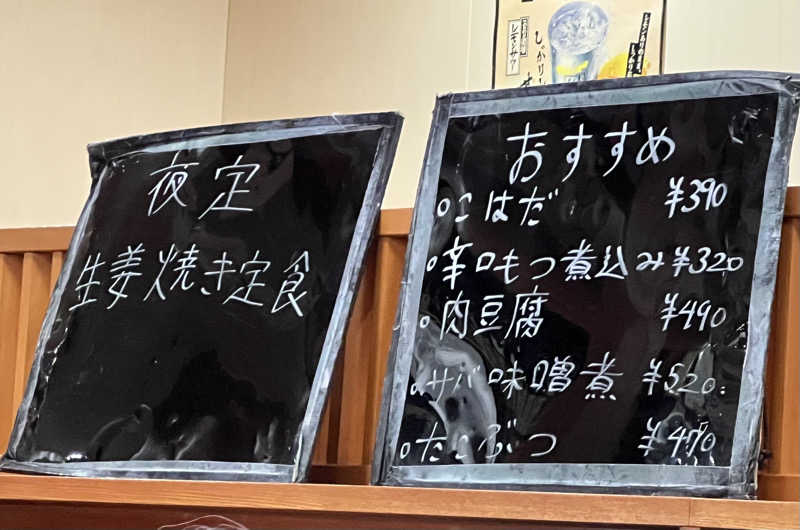 レモンサワー
夜定
生姜焼き定食
おすすめ
○こはだ ¥390
○辛口もつ煮込み ¥320
○肉豆腐 ¥490
○サバ味噌煮 ¥520
○たこぶつ ¥470